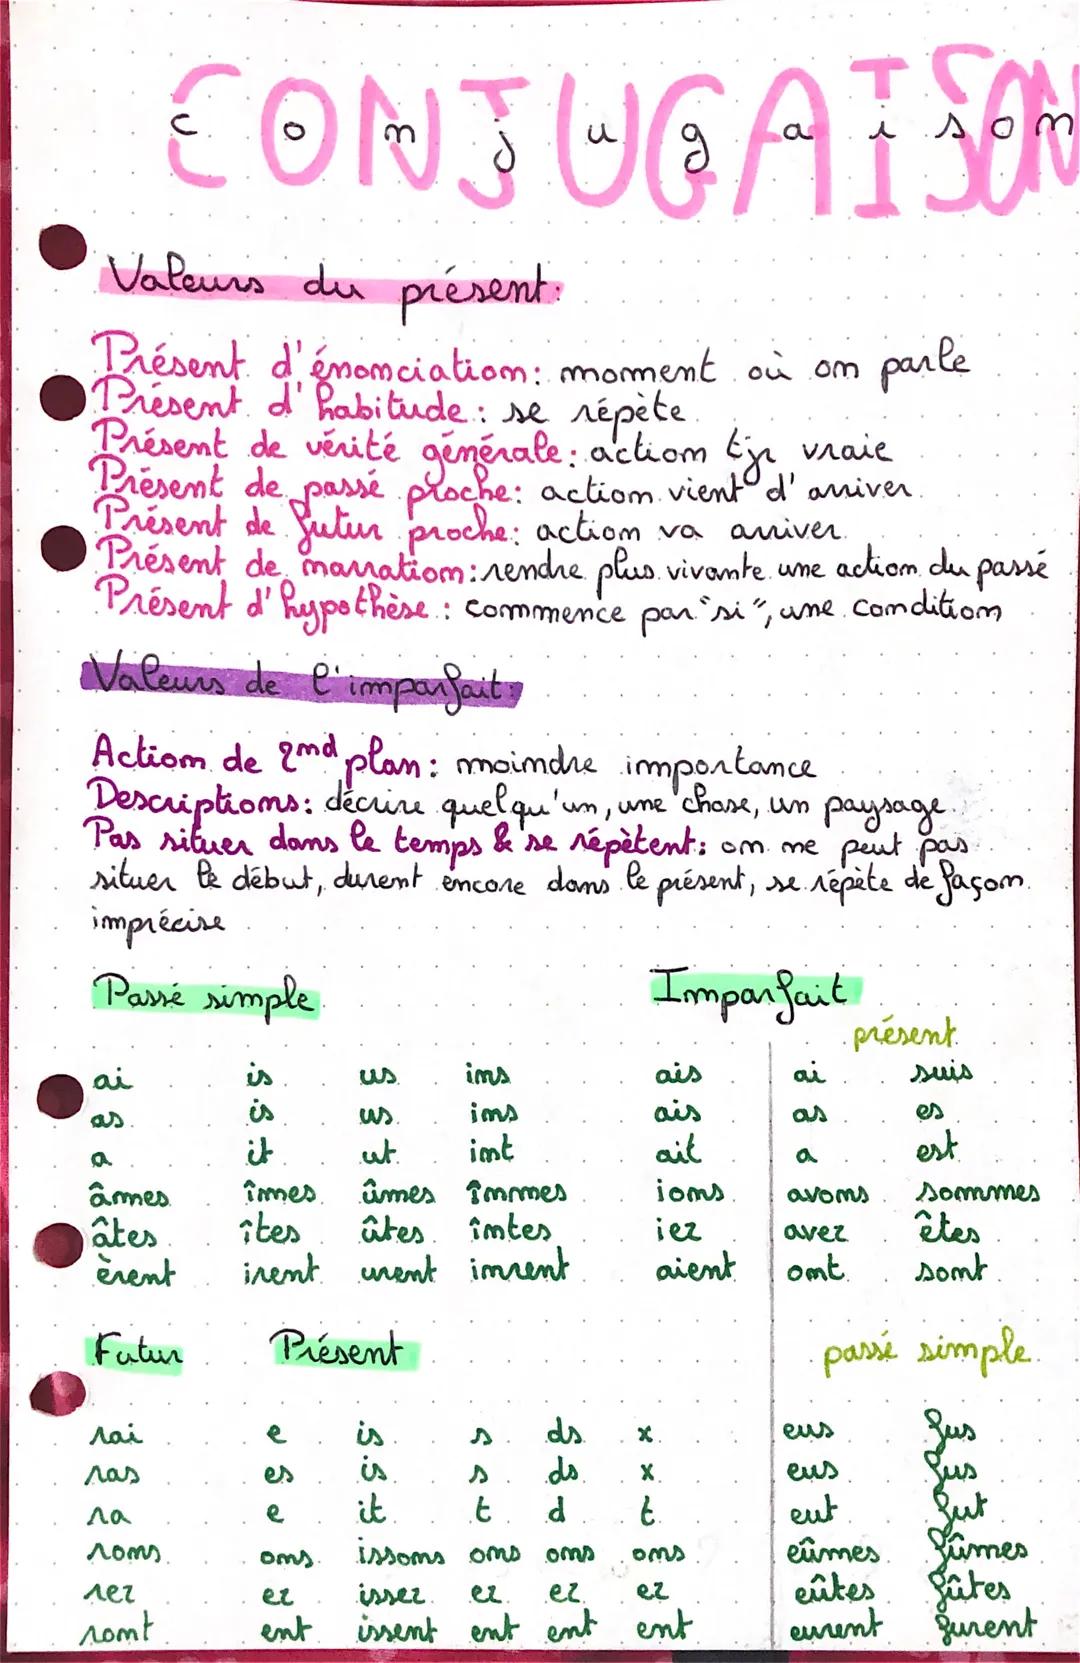 CONJUGAISON
conjugaison
Valeurs du présent:
Présent d'énonciation: moment où on parle
Présent d'habitude: se répète
Présent de vérité générale: action tjr vraie
Présent de passé proche: action vient d'arriver
Présent de futur proche: action va arriver
Présent de narration: rendre plus vivante une action du passé
Présent d'hypothèse: commence par "si", une condition
Valeurs de l'imparfait:
Action de 2nd plan: moindre importance
Descriptions: décrire quelqu'un, une chose, un paysage
Pas situer dans le temps & se répètent: on ne peut pas
situer le début, durent encore dans le présent, se répète de façon
imprécise
Passé simple Imparfait
présent
ai is us ins ais ai suis
as is us ins ais as es
a it ut int ait a est
âmes îmes ûmes înmes ions avons sommes
âtes îtes ûtes întes iez avez êtes
èrent irent urent inrent aient ont sont
Futur Présent passé simple
rai e is s ds x eus fus
ras es is s ds x eus fus
ra e it t d t eut fut
rons ons issons ons ons ons eûmes fûmes
rez ez issez ez ez ez eûtes fûtes
ront ent issent ent ent ent eurent furent